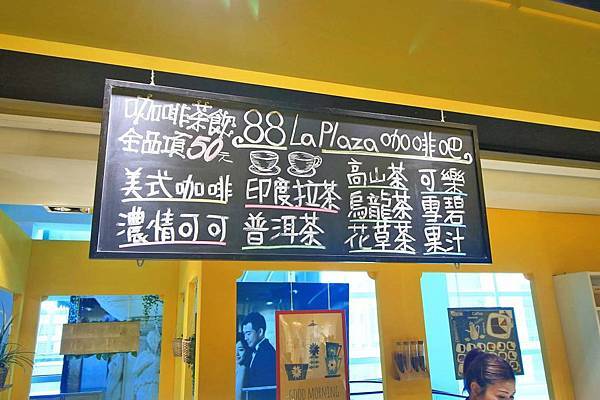 咖啡茶飲 88 La Plaza 咖啡吧
全品項50元
美式咖啡 印度拉茶 高山茶 可樂
烏龍茶 雪碧
濃情可可 普洱茶 花草茶 果汁
GOOD MORNING
Coffee